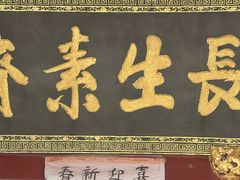 長生素齋
喜迎新春